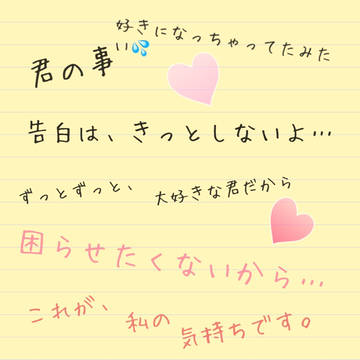 君の事
好きになっちゃってたみた
い💦
告白は、きっとしないよ…
ずっとずっと、
大好きな君だから
困らせたくないから…
これが、
私の
気持ちです。